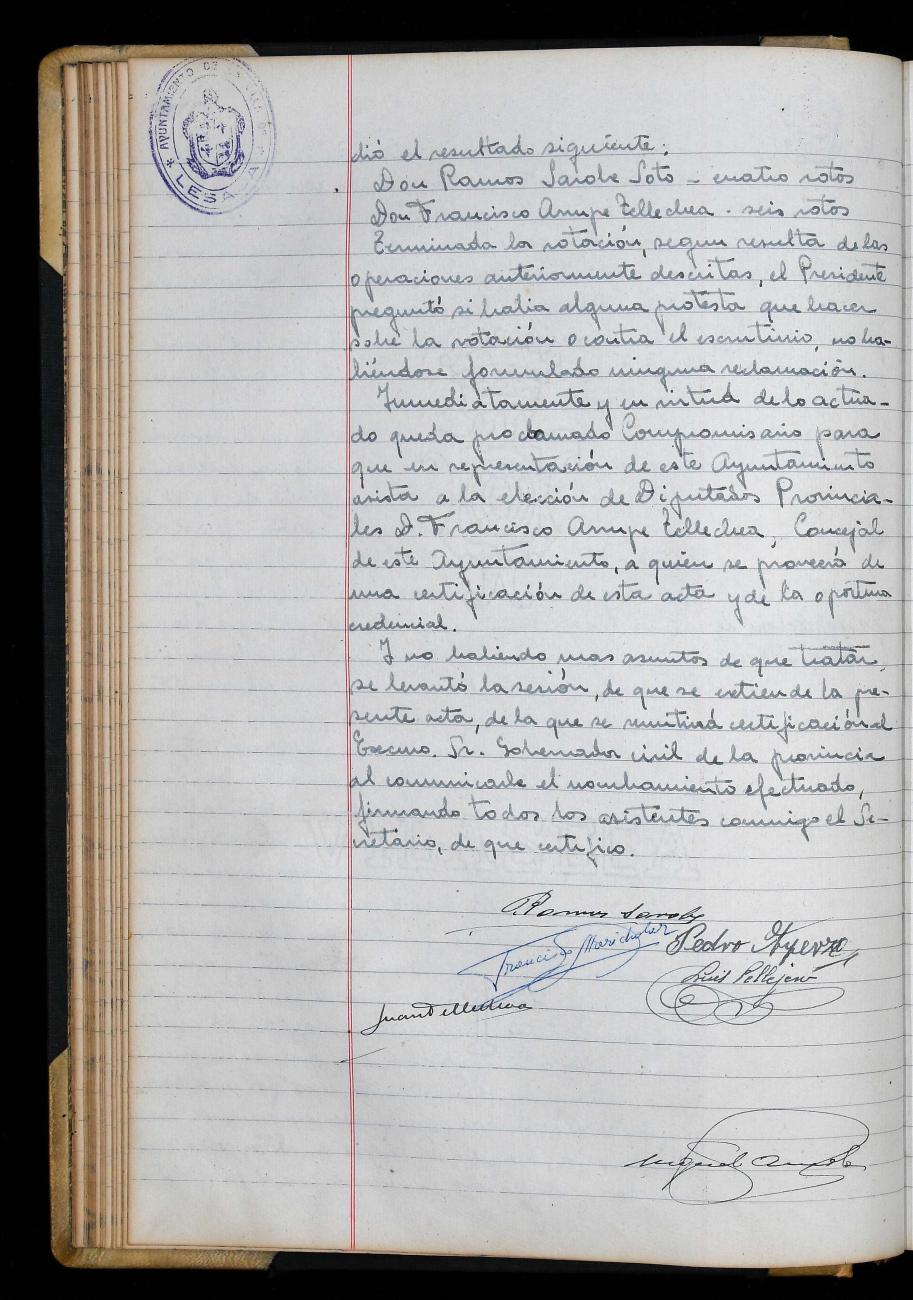 AYUNTAMIENTO DE
LESACA
dió el resultado siguiente:
Don Ramos Sarobe Soto - cuatro votos
Don Francisco Arrupe Tellechea - seis votos
Terminada la votación, segun resulta de las
operaciones anteriormente descritas, el Presidente
preguntó si habia alguna protesta que hacer
sobre la votación o contra el escrutinio, no ha-
biéndose formulado ninguna reclamación.
Inmediatamente y en virtud de lo actua-
do queda proclamado Compromisario para
que en representación de este Ayuntamiento
asista a la elección de Diputados Provincia-
les D. Francisco Arrupe Tellechea, Concejal
de este Ayuntamiento, a quien se proveerá de
una certificación de esta acta y de la oportuna
credencial.
Y no habiendo mas asuntos de que tratar,
se levantó la sesión, de que se extiende la pre-
sente acta, de la que se remitirá certificación al
Excmo. Sr. Gobernador civil de la provincia
al comunicarle el nombramiento efectuado,
firmando todos los asistentes conmigo el Se-
cretario, de que certifico.
Ramos Sarobe
Francisco Marichalar
Pedro
Luis Pellejero
Juan Tellechea
Miguel